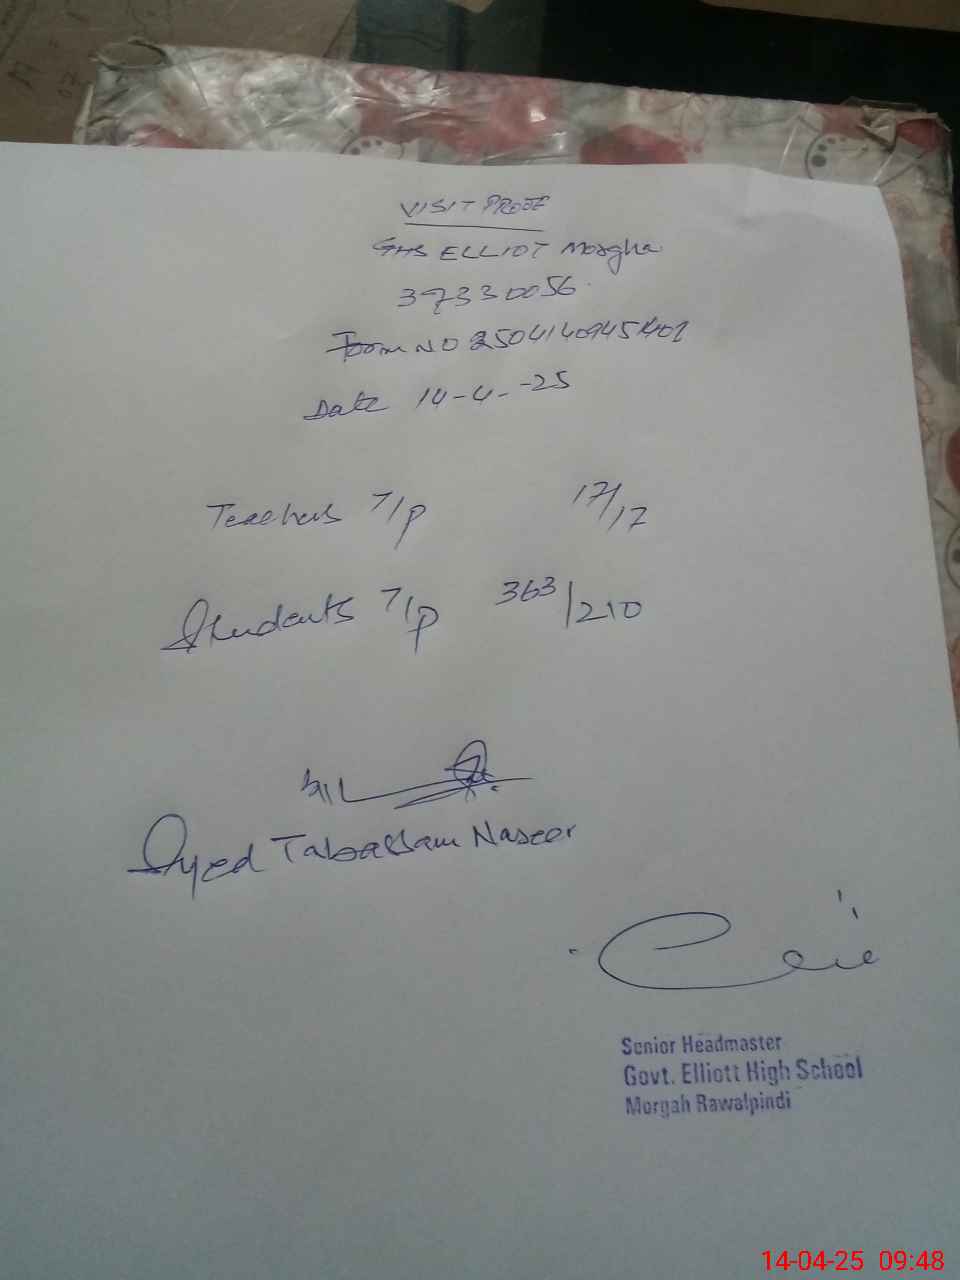 VISIT PROOF
GHS ELLIOT Morgha
37330056
Form NO
Date 14-4-25
Teachers T/P 17/17
Students T/P 363/210
Syed Tabassam Naseer
Senior Headmaster
Govt. Elliott High School
Morgah Rawalpindi
14-04-25 09:48